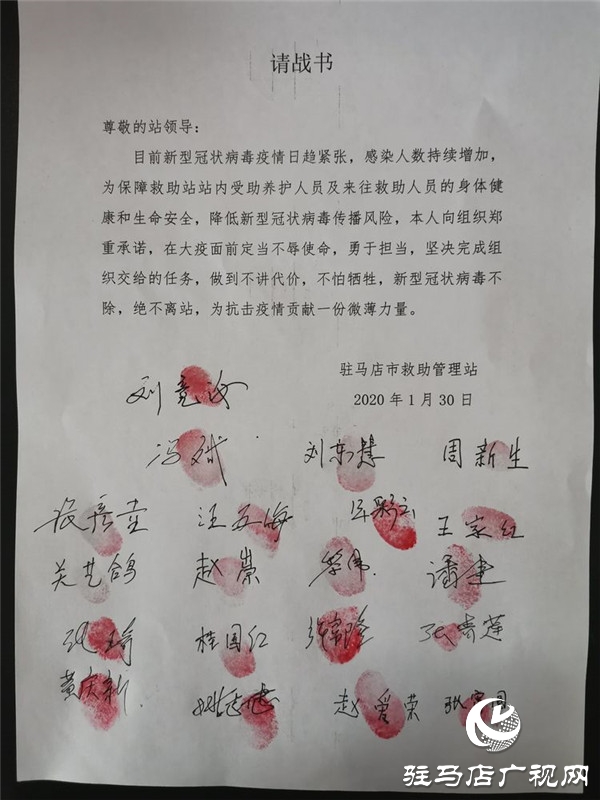 请战书
尊敬的站领导：
目前新型冠状病毒疫情日趋紧张，感染人数持续增加，
为保障救助站站内受助养护人员及来往救助人员的身体健
康和生命安全，降低新型冠状病毒传播风险，本人向组织郑
重承诺，在大疫面前定当不辱使命，勇于担当，坚决完成组
织交给的任务，做到不讲代价，不怕牺牲，新型冠状病毒不
除，绝不离站，为抗击疫情贡献一份微薄力量。
驻马店市救助管理站
2020年1月30日
刘竟汝
冯斌 刘东慧 周新生
汪五海 王家红
关艺鸽 赵崇 李伟 潘建
张琦 桂国红 张春莲
黄庆新 赵爱荣
驻马店广视网